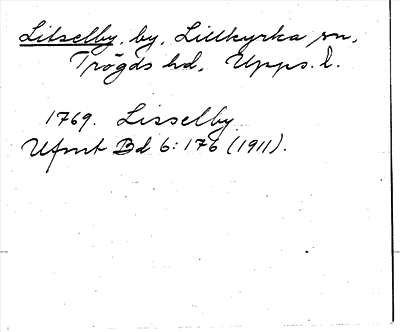 Litselby, by, Lillkyrka sn,
Trögds hd, Upps. l.
1769. Lisselby
Ufmt Bd 6: 176 (1911).